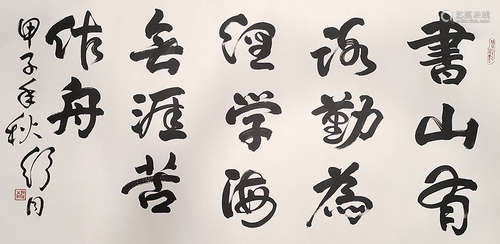 書山有
路勤為
徑学海
無涯苦
作舟
甲子年秋舒同